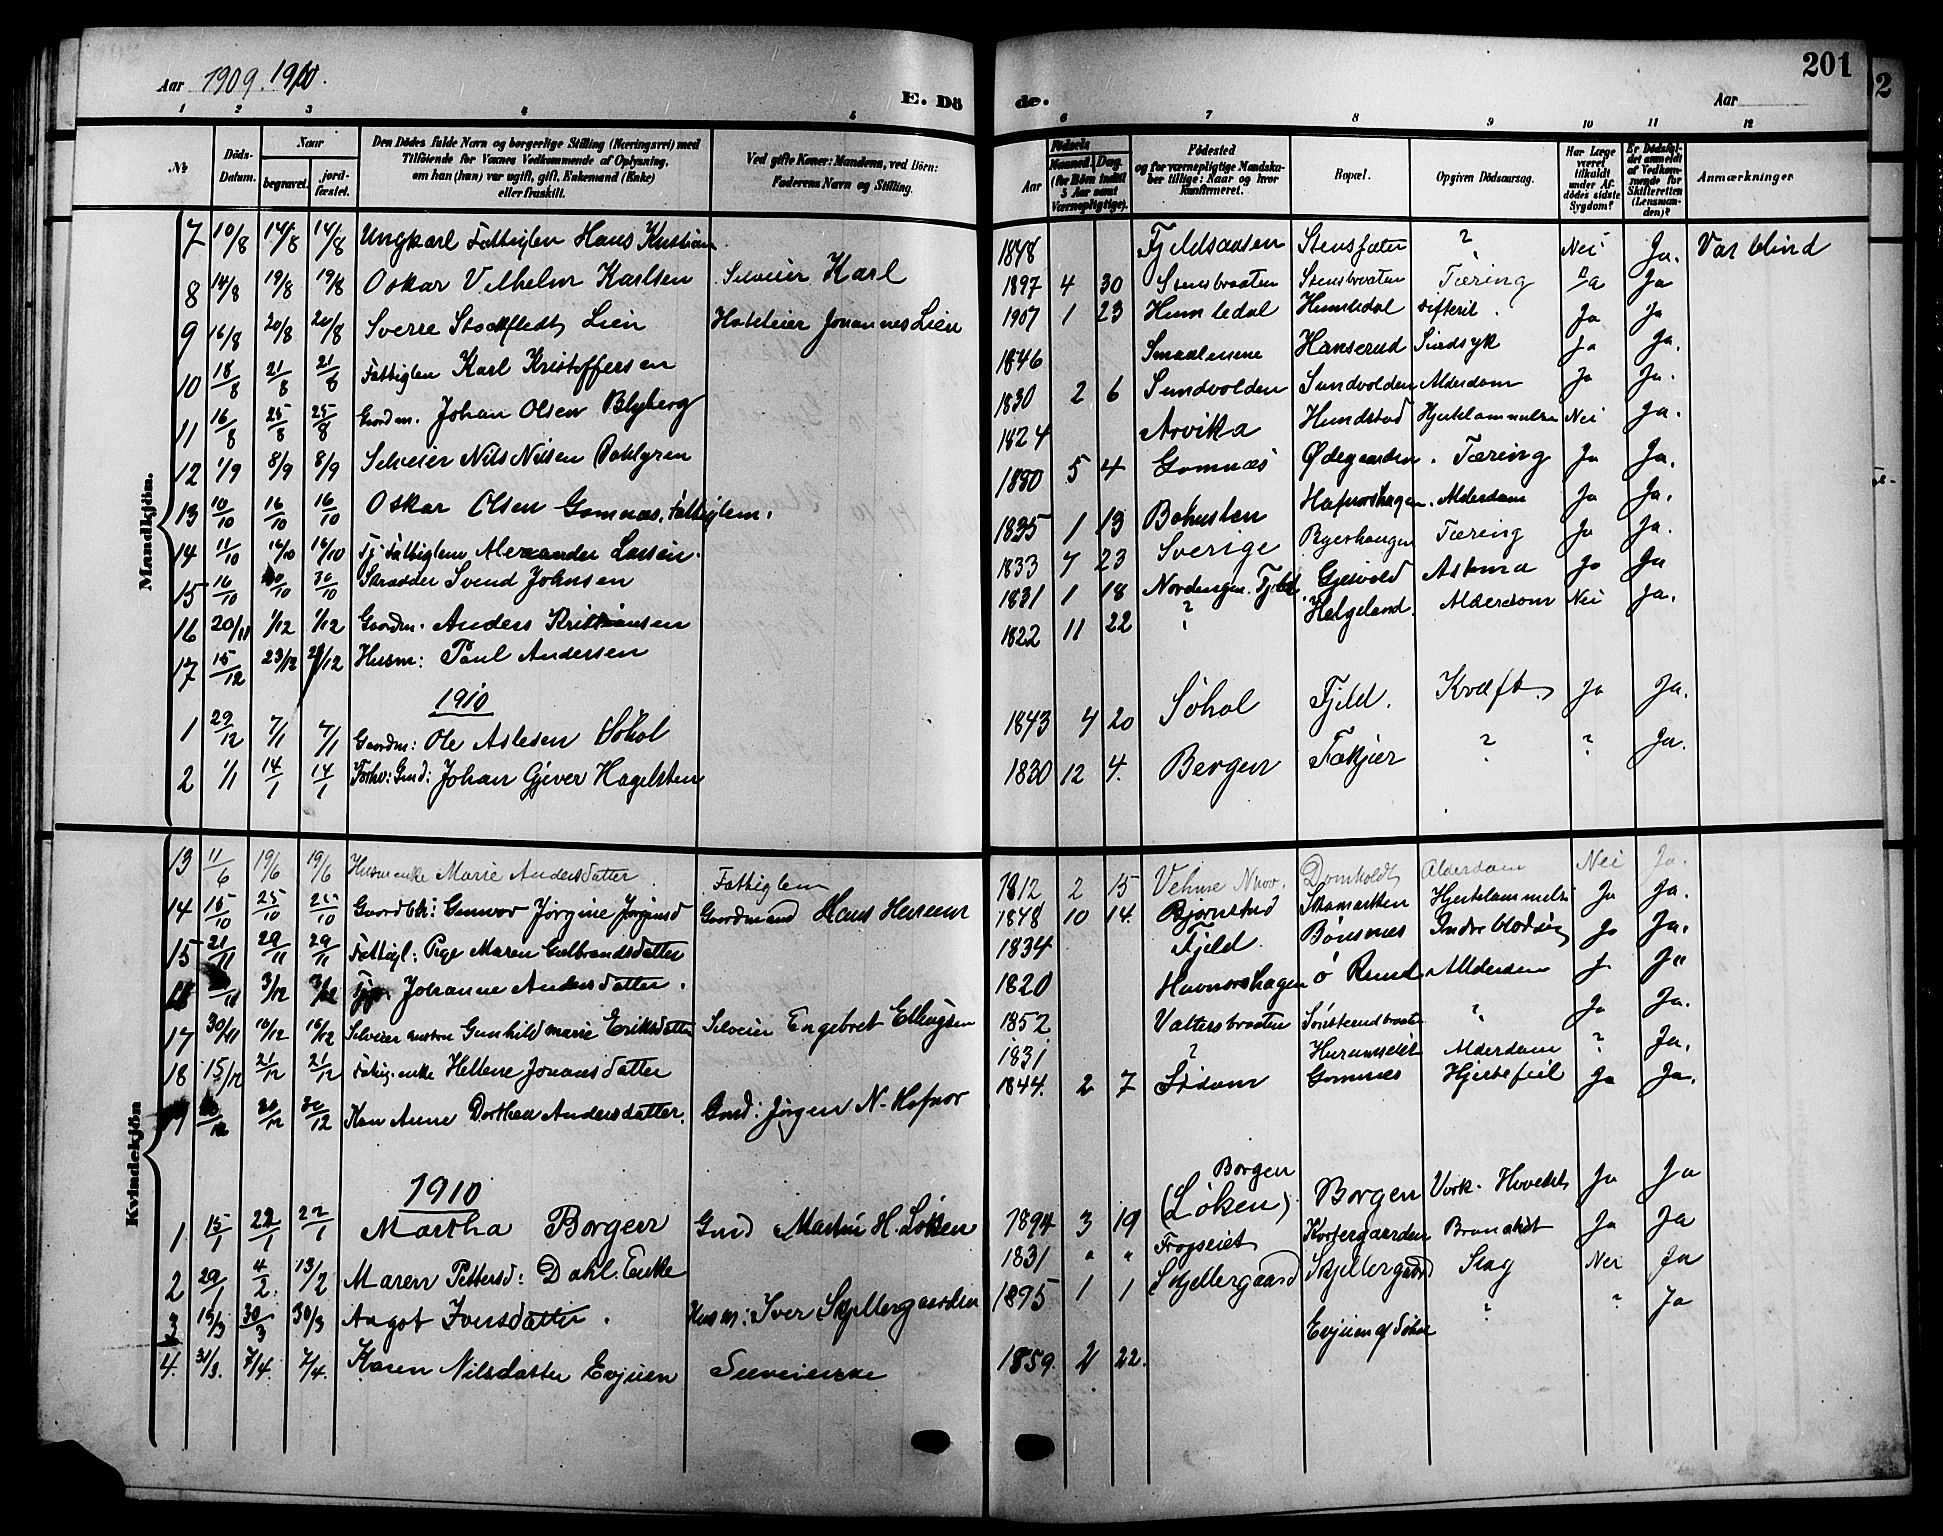 Aar 1909. 1910.
E. Dö
de.
Aar
201
1 2 3 4 5 6 7 8 9 10 11 12
№
Döds-Datum.
Naar
begravet.
jord-fæstet.
Den Dödes fulde Navn og borgerlige Stilling (Næringsvei) med
Tilföiende for Voxnes Vedkommende af Oplysning,
om han (hun) var ugift, gift, Enkemand (Enke)
eller fraskilt.
Ved gifte Koner: Mandens, ved Börn:
Faderens Navn og Stilling.
Födsels
Aar
Maaned. Dag.
(for Börn indtil
5 Aar samt
Værnepligtige).
Födested
og for værnepligtige Mandska-
ber tillige: Naar og hvor
konfirmeret.
Bopæl.
Opgiven Dödsaarsag.
Har Læge
været
tilkaldt
under Af-
dödes sidste
Sygdom?
Er Dödsfal-
det anmeldt
af Vedkom-
mende for
Skifteretten
(Lensman-
den)?
Anmærkninger
Mandkjön.
7 10/8 14/8 14/8 Ungkarl Fattiglem Hans Kristian 1848 Fjeldsaasen Stensfæter ? Nei Ja. Var blind
8 14/8 19/8 19/8 Oskar Vilhelm Karlsen Selveier Karl 1897 4 30 Stensbraaten Stensbraaten Tæring Ja Ja
9 16/8 20/8 20/8 Sverre Stockfledt Lien Hoteleier Johannes Lien 1907 1 23 Hemsedal Hemsedal Difterit. Ja Ja
10 18/8 21/8 21/8 Fattiglem Karl Kristoffersen 1846 Smaalenene Hanserud Sindsyk Ja Ja.
11 16/8 25/8 25/8 Gaardm. Johan Olsen Blyberg 1830 2 6 Sundvolden Sundvolden Alderdom Ja Ja.
12 1/9 8/9 8/9 Selveier Nils Nilsen Dahlgren 1824 Arvika Hundstad Hjertelammelse Nei Ja.
13 10/10 16/10 16/10 Oskar Olsen Gomnæs, Fattiglem. 1880 5 4 Gomnæs Ødegaarden. Tæring Ja Ja.
14 11/10 16/10 16/10 Fattiglem Alexander Larsen. 1835 1 13 Bohuslen Hafnorshagen. Alderdom Ja Ja.
15 16/10 30/10 30/10 Skrædder Svend Johnsen 1833 7 23 Sverige Byerhaugen Tæring Ja Ja.
16 20/11 1/12 1/12 Gaardm. Anders Kristiansen 1831 1 18 Nordengen. Fjeld. Gjesvold Astma Ja Ja
17 15/12 23/12 /12 Husm: Paul Andersen 1822 11 22 ? Helgeland. Alderdom Nei Ja.
1910
1 29/12 7/1 7/1 Gaardm: Ole Aslesen Søhol 1843 4 20 Søhol Fjeld. Kræft. Ja Ja.
2 1/1 14/1 14/1 Forhv: Gmd: Johan Gjever Hagelsten 1830 12 4. Bergen ? ? Ja.
Kvindekjön
13 11/6 19/6 19/6 Husm enke Marie Andersdatter Fattiglem 1812 2 15 Vehme Domholdt Alderdom Nei Ja.
14 15/10 25/10 25/10 Gunvor Jørgine Gaardmand Hans 1848 10 14. Bjørnstad Skamarken Hjertelammelse Ja Ja.
15 21/11 29/11 29/11 Fattigl: Pige Maren Gulbrandsdatter 1834 Fjeld. Bønsnes Indre blødning Ja Ja.
/11 3/12 3/12 Johanne Andersdatter. 1820 Havnorshagen Ø Rud Alderdom Ja
17 30/11 10/12 10/12 Selveier Gunhild marie Eriksdatter Selveier Engebret Ellingsen 1852 Valtersbraaten Sønsterudbraaten ? Ja Ja.
18 15/12 21/12 21/12 Fattig. enke Hellene Johansdatter 1831 ? Alderdom ? Ja.
19 /12 /12 /12 Kone Anne Dorthea Andersdatter. Gmd: Jørgen N. Hafnor 1844. 2 7 Gomnes Hjertefeil Ja Ja.
1910
1 15/1 22/1 22/1 Martha Borgen Gmd Martin H. Løken 1894 3 19 Borgen (Løken). Borgen Ja Ja
2 29/1 4/2. 13/2 Maren Pettersd: Dahl. Enke 1831 " " Frogseiet Kortergaarden Ja Ja
3 19/3 30/3 30/3 Angot Iversdatter. Husm: Iver Skjellergaarden 1895 1 1 Skjellergaard Skjellergaard Slag Nei Ja
4. 31/3. 7/4. 7/4. Karen Nilsdatter Evjuen Selveierske 1859. 2 22. Evjuen ? ? Ja